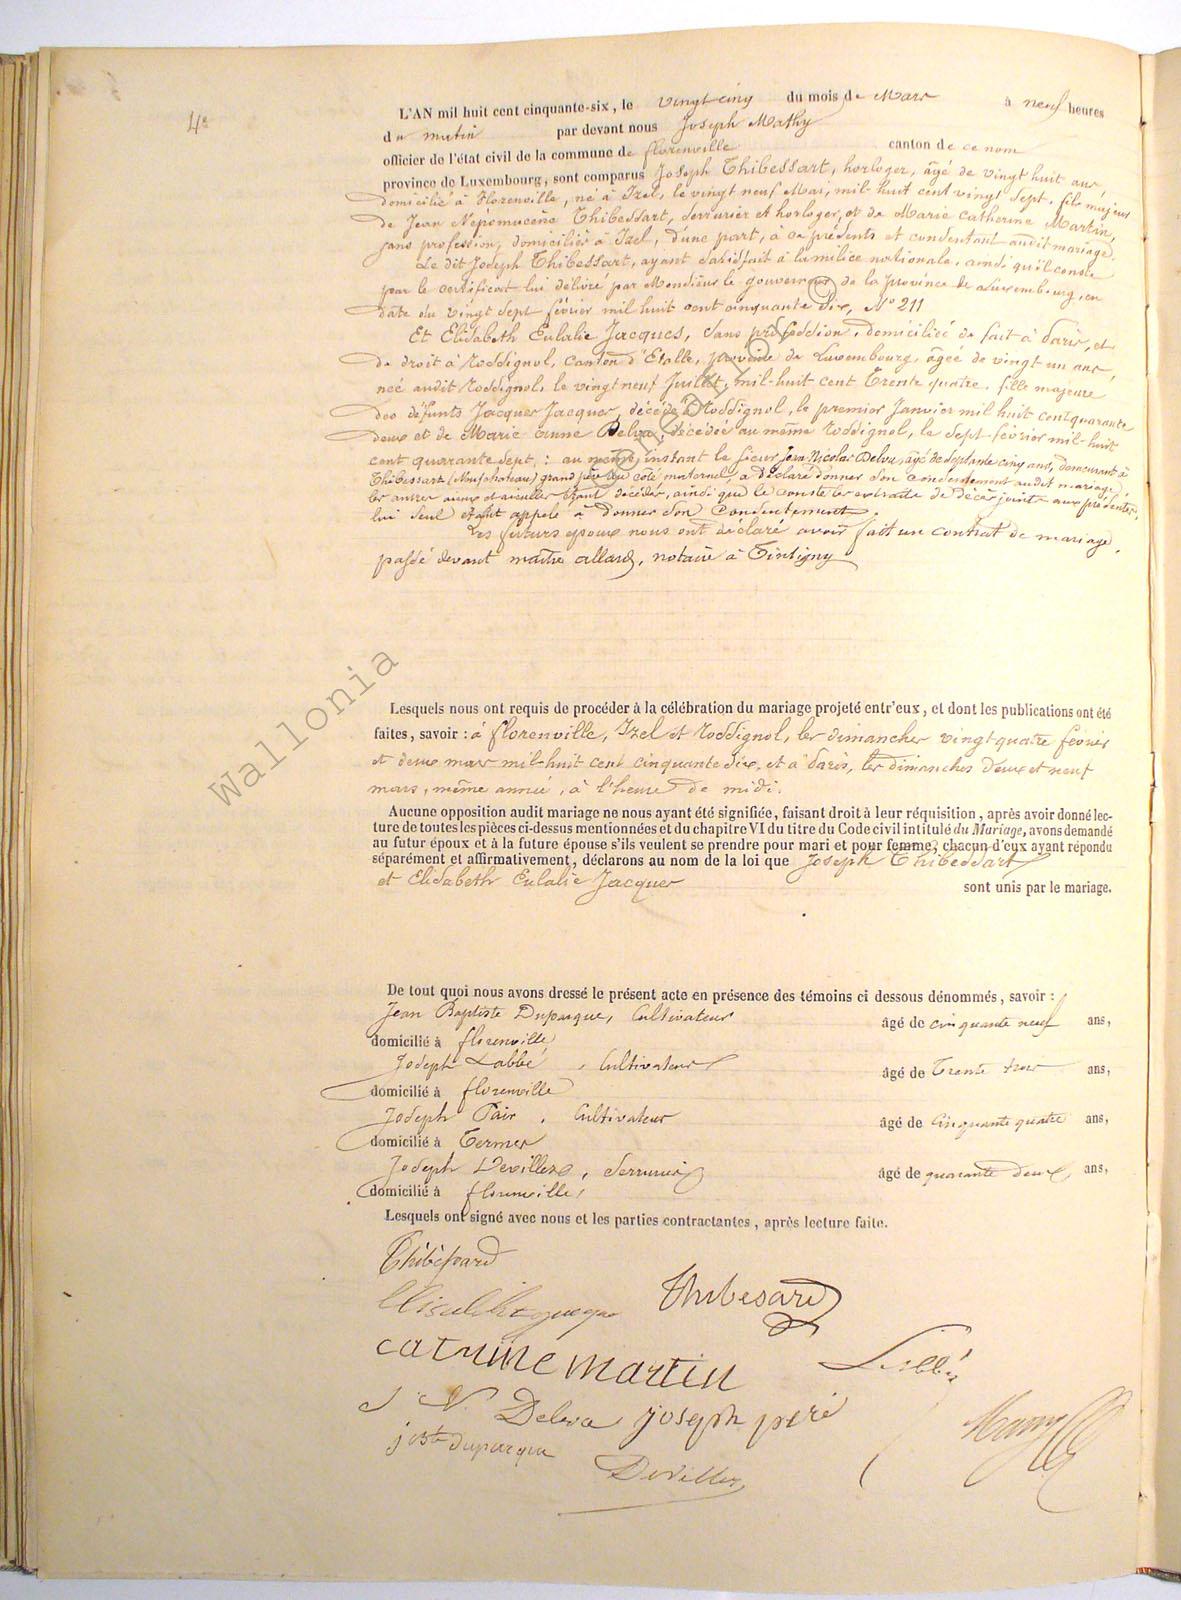 4e
L'AN mil huit cent cinquante-six, le vingt cinq du mois de Mars à neuf heures
du matin par devant nous Joseph Mathy
officier de l'état civil de la commune de florenville canton de ce nom
province de Luxembourg, sont comparus Joseph Thibessart, horloger, âgé de vingt huit ans
domicilié à Florenville, né à Izel, le vingt neuf Mai, mil huit cent vingt sept, fils majeur
de Jean Népomucène Thibessart, serrurier et horloger, et de Marie Catherine Martin,
sans profession, domiciliés à Izel, d'une part, à ce présents et consentant audit mariage.
Le dit Joseph Thibessart, ayant satisfait à la milice nationale, ainsi qu'il conste
par le certificat lui délivré par Monsieur le gouverneur de la province de Luxembourg, en
date du vingt sept février mil huit cent cinquante six, N° 211
Et Elisabeth Eulalie Jacques, sans profession, domiciliée de fait à Paris, et
de droit à Rossignol, canton d'Etalle, province de Luxembourg, âgée de vingt un ans,
née audit Rossignol, le vingt neuf Juillet, mil-huit cent trente quatre, fille majeure
des défunts Jacques Jacques, décédé à Rossignol, le premier Janvier mil huit cent quarante
deux et de Marie Anne Delva, décédée au même Rossignol, le sept février mil-huit
cent quarante sept, : au même instant le sieur Jean Nicolas Delva, âgé de septante cinq ans, demeurant à
Thibessart (Neufchateau) grand père du côté maternel, a déclaré donner son consentement audit mariage,
les autres aieux et aieulles étant décédés, ainsi que le conste les extraits de décès joints aux présentes,
lui seul étant appelé à donner son consentement.
Les futurs époux nous ont déclaré avoir fait un contrat de mariage,
passé devant maître allard, notaire à Tintigny
Lesquels nous ont requis de procéder à la célébration du mariage projeté entr'eux, et dont les publications ont été
faites, savoir : à florenville, Izel et Rossignol, les dimanches vingt quatre février
et deux mars mil-huit cent cinquante six, et à Paris, les dimanches deux et neuf
mars, même année, à l'heure de midi.
Aucune opposition audit mariage ne nous ayant été signifiée, faisant droit à leur réquisition, après avoir donné lec-
ture de toutes les pièces ci-dessus mentionnées et du chapitre VI du titre du Code civil intitulé du Mariage, avons demandé
au futur époux et à la future épouse s'ils veulent se prendre pour mari et pour femme, chacun d'eux ayant répondu
séparément et affirmativement, déclarons au nom de la loi que Joseph Thibessart
et Elisabeth Eulalie Jacques sont unis par le mariage.
De tout quoi nous avons dressé le présent acte en présence des témoins ci dessous dénommés, savoir :
Jean Baptiste Duparque, Cultivateur âgé de cinquante neuf ans,
domicilié à florenville
Joseph Labbé, Cultivateur âgé de trente trois ans,
domicilié à florenville
Joseph Pair, Cultivateur âgé de cinquante quatre ans,
domicilié à Termes
Joseph Devillez, Serrurier âgé de quarante deux ans,
domicilié à florenville,
Lesquels ont signé avec nous et les parties contractantes, après lecture faite.
Thibessard
Thibesard
catrine martin Labbé
J N Delva joseph peré
j bte duparque
Devillez
Wallonia